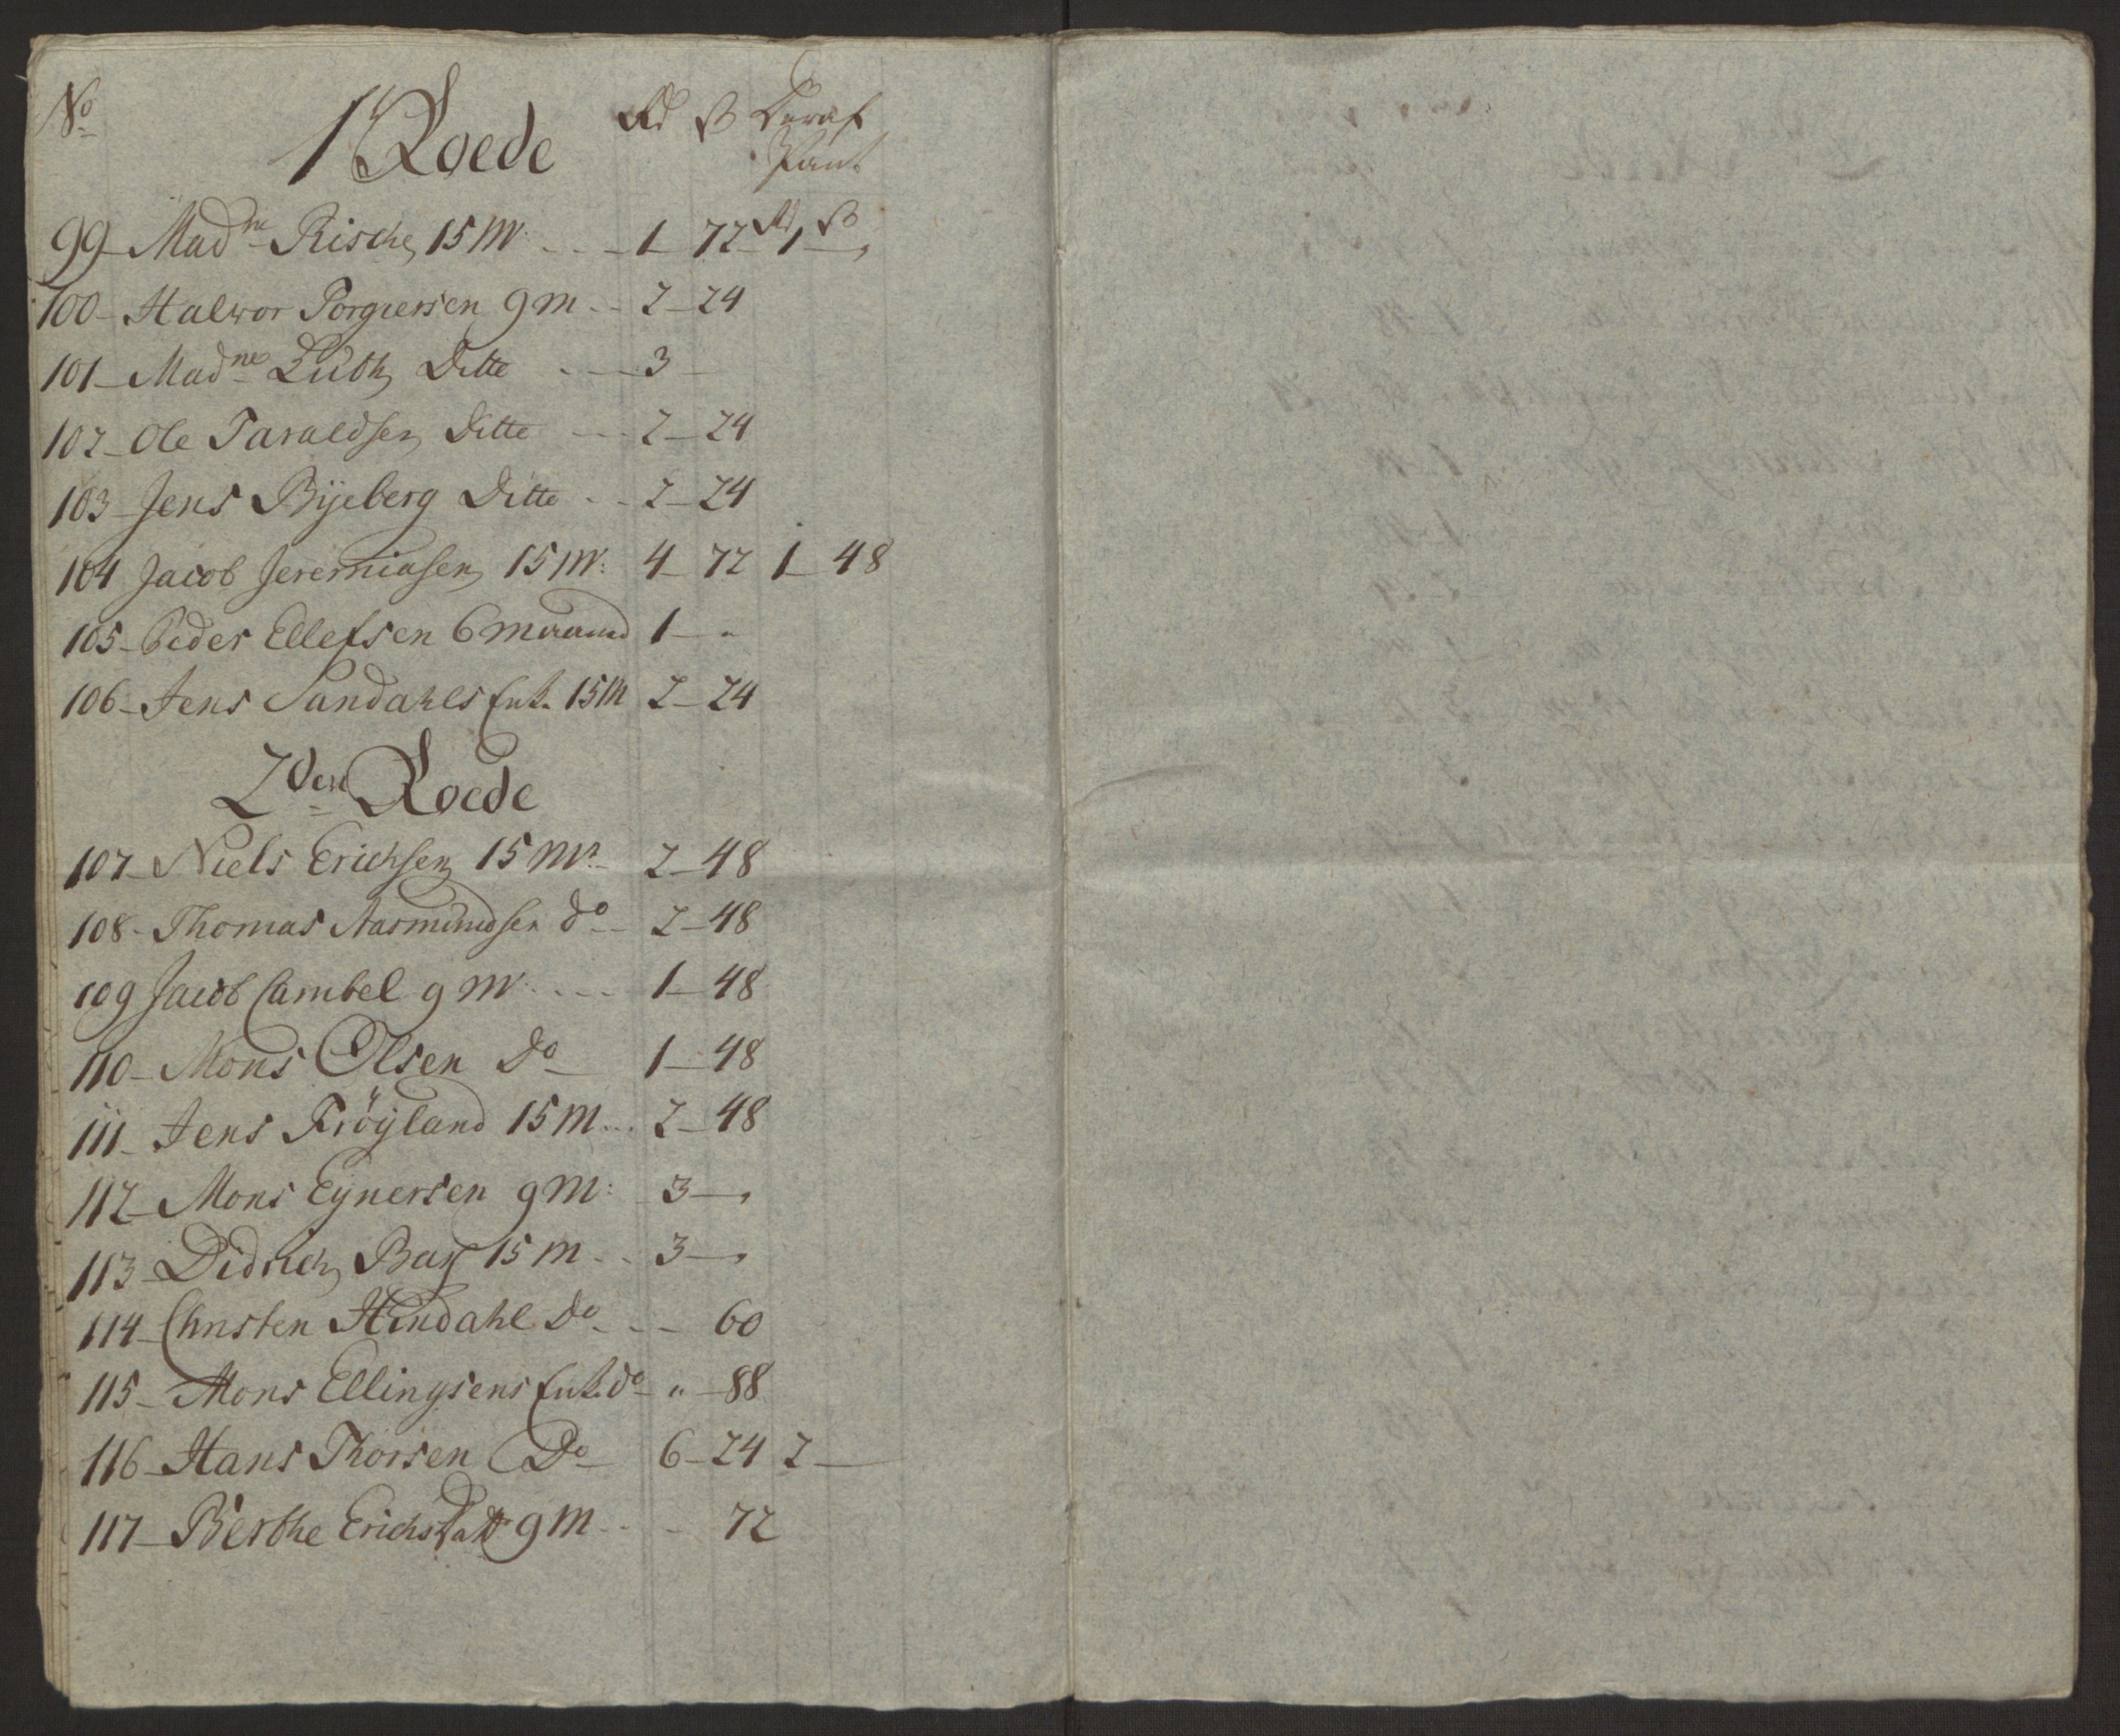 No 1 Roede Rd ß Deraf
Pant
99 Madne Risch 15 M: 1 72 Rd 1 ß
100 Halvor Torgiersen 9 M 2 24
101 Madne Luth Ditte 3
102 Ole Taraldsen Ditte 2 24
103 Jens Bÿeberg Ditte 2 24
104 Jacob Jeremiasen 15 M: 4 72 1 48
105 Peder Ellefsen 6 Maaned 1 "
106 Jens Sandahls Enk. 15 M 2 24
2den Roede
107 Niels Erichsen 15 Mr 2 48
108 Thomas Aasmundsen do 2 48
109 Jacob Cambel 9 M 1 48
110 Mons Olsen do 1 48
111 Jens Fröÿland 15 M 2 48
112 Mons Eÿnersen 9 M: 3
113 Didrich 15 M 3
114 Christen Hindahl do 60
115 Mons Ellingsens Enk. do " 88
116 Hans Thorsen Do 6 24 2
117 Berthe Erichsdatt 9 M 72